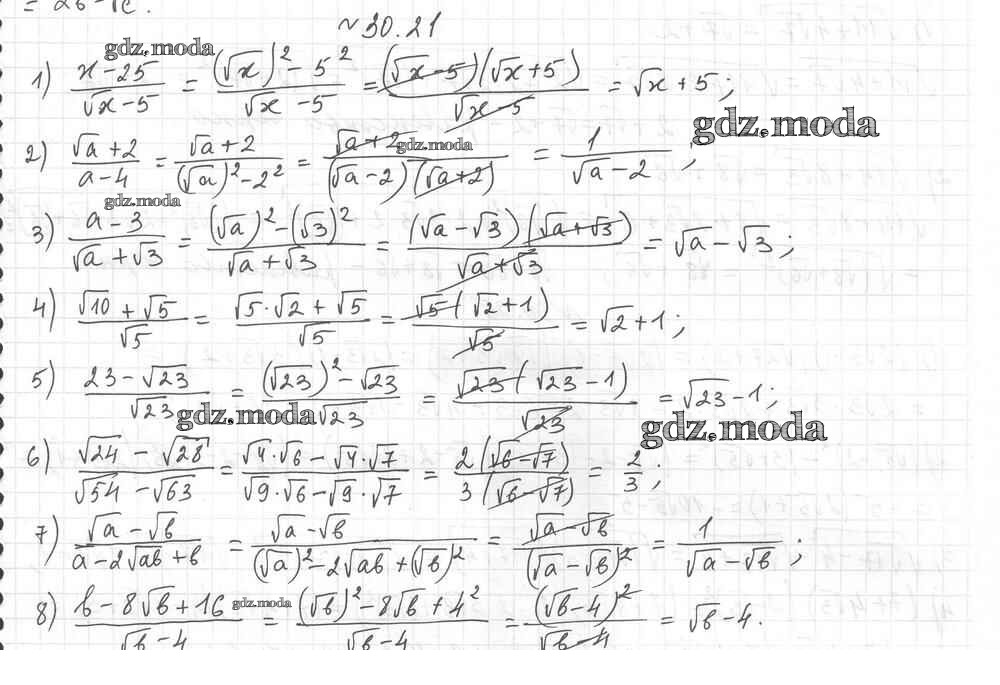 = 2b - √c
№ 30.21
gdz.moda
1) (x-25)/(√x-5) = ((√x)²-5²)/(√x-5) = ((√x-5)(√x+5))/(√x-5) = √x+5;
gdz.moda
2) (√a+2)/(a-4) = (√a+2)/((√a)²-2²) = (√a+2)/((√a-2)(√a+2)) = 1/(√a-2);
gdz.moda
gdz.moda
3) (a-3)/(√a+√3) = ((√a)²-(√3)²)/(√a+√3) = ((√a-√3)(√a+√3))/(√a+√3) = √a-√3;
4) (√10+√5)/√5 = (√5·√2+√5)/√5 = (√5(√2+1))/√5 = √2+1;
5) (23-√23)/√23 = ((√23)²-√23)/√23 = (√23(√23-1))/√23 = √23-1;
gdz.moda
gdz.moda
6) (√24-√28)/(√54-√63) = (√4·√6-√4·√7)/(√9·√6-√9·√7) = (2(√6-√7))/(3(√6-√7)) = 2/3;
7) (√a-√b)/(a-2√ab+b) = (√a-√b)/((√a)²-2√ab+(√b)²) = (√a-√b)/((√a-√b)²) = 1/(√a-√b);
8) (b-8√b+16)/(√b-4) = ((√b)²-8√b+4²)/(√b-4) = ((√b-4)²)/(√b-4) = √b-4.
gdz.moda